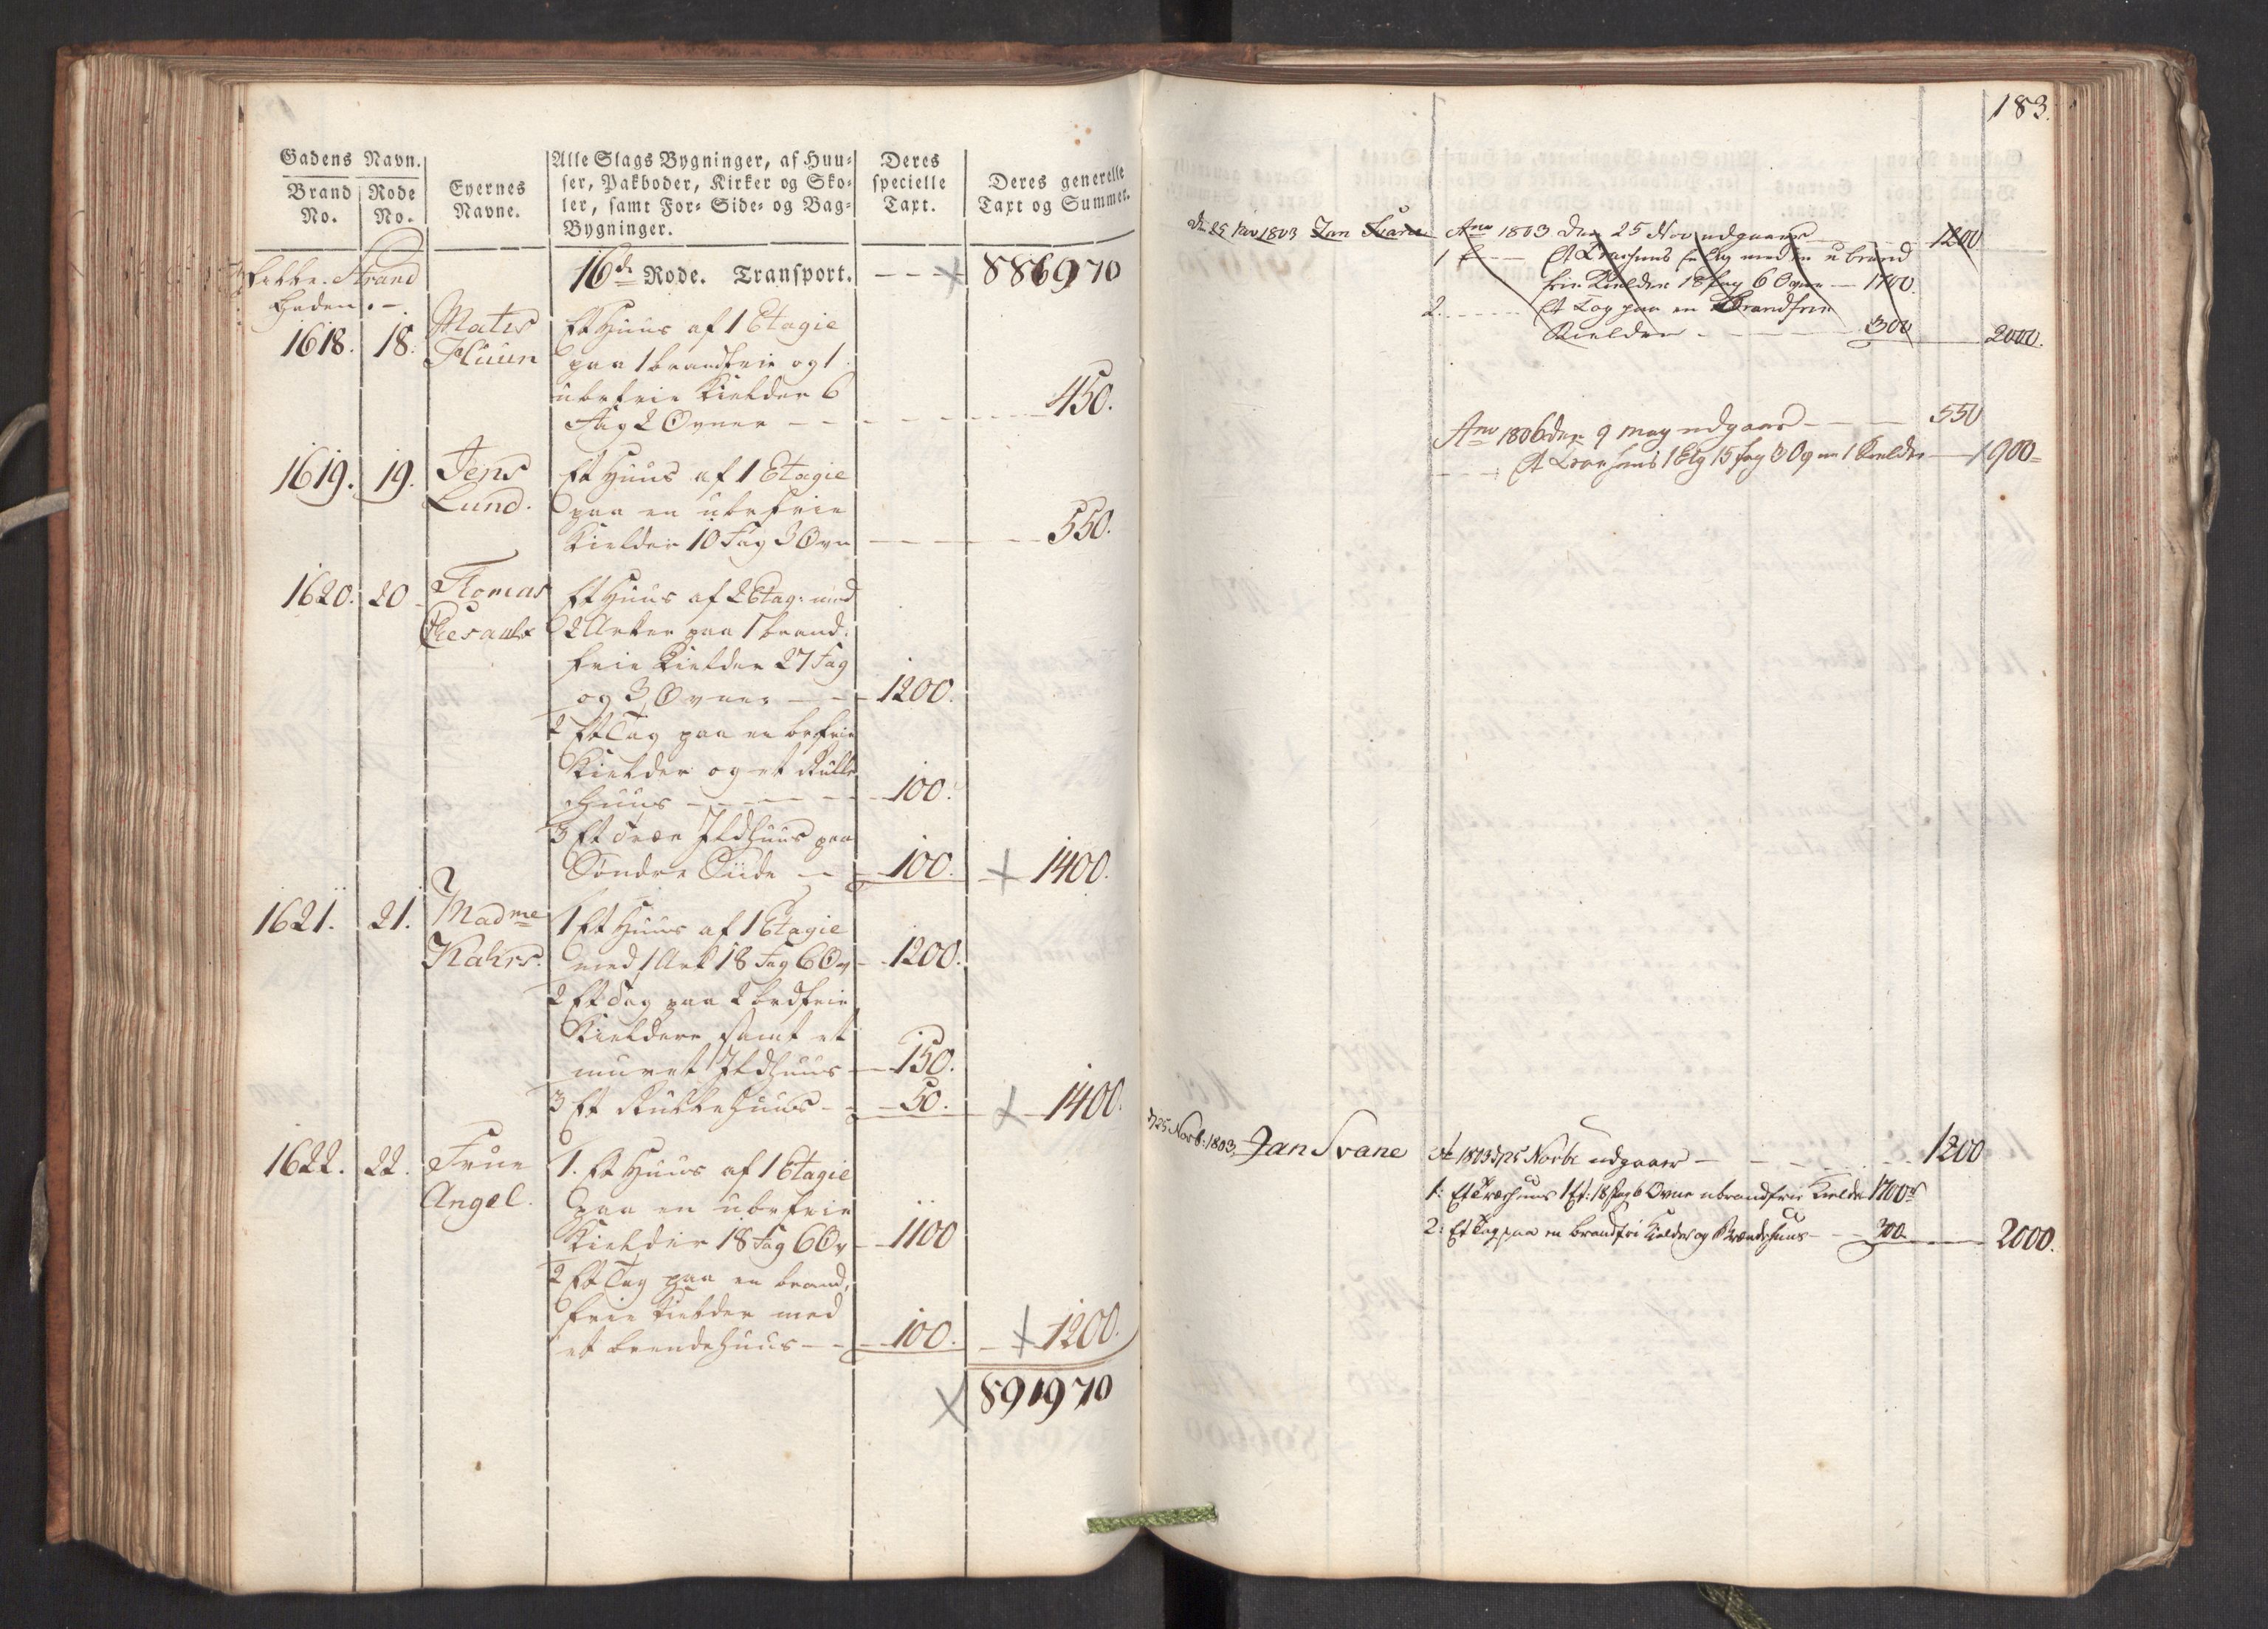 Gadens Navn.
Brand No.
Rode No.
Eyernes Navne.
Alle Slags Bygninger, af Huu-
ser, Pakboder, Kirker og Sko-
ler, samt For- Side- og Bag-
Bygninger.
Deres specielle Taxt.
Deres generelle Taxt og Summer.
Strand
Gaden.
16de Rode. Transport. 886970
1618. 18. Mats Et Huus af 1 Etagie
paa 1 brandfrie og 1
ubrfrie Kielder 6
Fag 2 Ovner 450.
1619. 19. Jens Et Huus af 1 Etagie
Lund. paa en ubrfrie
Kielder 10 Fag 3 Ovn 550.
1620. 20 Tomas Et Huus af 2 Etag: med
2 Arker paa 1 brand-
frie Kielder 27 Fag
og 3 Ovner 1200.
2 Et Tag paa en brfrie
Kielder og et Rulle
huus 100.
3 Et Træe Ildhuus paa
Søndre Siide 100. 1400.
1621. 21. Madme 1 Et Huus af 1 Etagie
Kahrs. med 1 Ark 18 Fag 6 Ov 1200.
2 Et Tag paa 2 brdfrie
Kieldere samt et
muret Ildhuus 150.
3 Et Rullehuus 50. 1400.
1622. 22. Frue 1. Et Huus af 1 Etagie
Angel. paa en ubrfrie
Kielder 18 Fag 6 Ov 1100
2 Et Tag paa en brand-
frie Kielder med
et brendehuus 100. 1200.
891970
183.
d. 25 Nov 1803 Jan Svane Ano 1803 den 25 Nov udgaaer 1200
1 Et Træehuus en Etg med en ubrand
frie Kielder 18 fag 6 Ovne 1700.
2. Et Tag paa en Brandfrie
Kielder 300 2000.
Ano 1806 den 9 May udgaaer 550
Et Træehuus 1 Etg 15 fag 3 Ogne 1 Kielder 1900
d 25 Novb: 1803. Jan Svane Ao 1803 d 25 Novbr udgaaer 1200
1: Et Træehuus 1 Et: 18 fag 6 Ovne ubrandfrie Kielder 1700
2: Et Tag paa en brandfri Kielder og Brændehuus 300 2000.